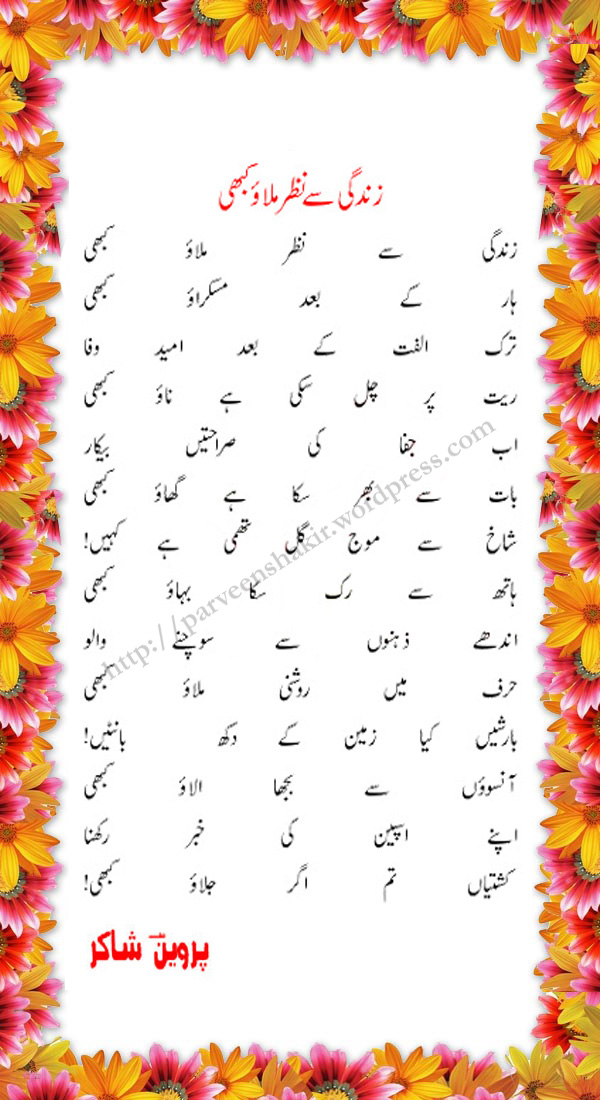 زندگی سے نظر ملاؤ کبھی
زندگی سے نظر ملاؤ کبھی
ہار کے بعد مسکراؤ کبھی
ترک الفت کے بعد امید وفا
ریت پر چل سکی ہے ناؤ کبھی
اب جفا کی صراحتیں بیکار
بات سے بھر سکا ہے گھاؤ کبھی
شاخ سے موج گل تھمی ہے کہیں!
ہاتھ سے رک سکا بہاؤ کبھی
اندھے ذہنوں سے سوچنے والو
حرف میں روشنی ملاؤ کبھی
بارشیں کیا زمین کے دکھ بانٹیں!
آنسوؤں سے بجھا الاؤ کبھی
اپنے اسپین کی خبر رکھنا
کشتیاں تم اگر جلاؤ کبھی!
پروین شاکر
http://parveenshakir.wordpress.com